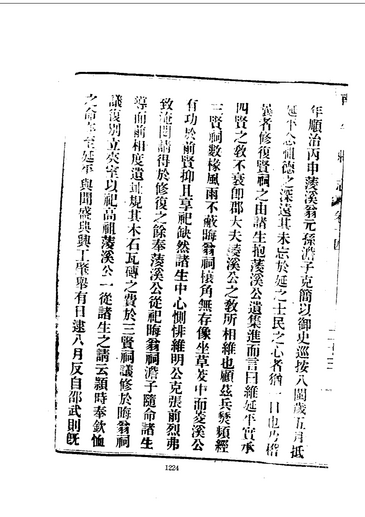 年順治丙申蔆溪翁元孫澹子克簡以御史巡按八閩歲五月抵
延平念祖德之深遠其未忘於延之士民之心者猶一日也乃稽
曩者修復賢祠之由諸生抱蔆溪公遺集進而言曰維延平實承
四賢之敎不衰卽郡大夫蔆溪公之敎所相維也顧茲兵燹頻經
三賢祠數椽風雨不蔽晦翁祠壞角無存像坐草芨中而蔆溪公
有功於前賢抑且享祀缺然諸生中心惻悱維明公克張前烈弗
致湮閼請得於修復之餘奉蔆溪公從祀晦翁祠澹子隨命諸生
導而前相度遺址規其木石瓦磚之費於三賢祠議修於晦翁祠
議復別立夾室以祀高祖蔆溪公一從諸生之請云顥時奉欽恤
之命亦至延平與聞盛典興工肇舉有日逮八月反自邵武則旣
1224